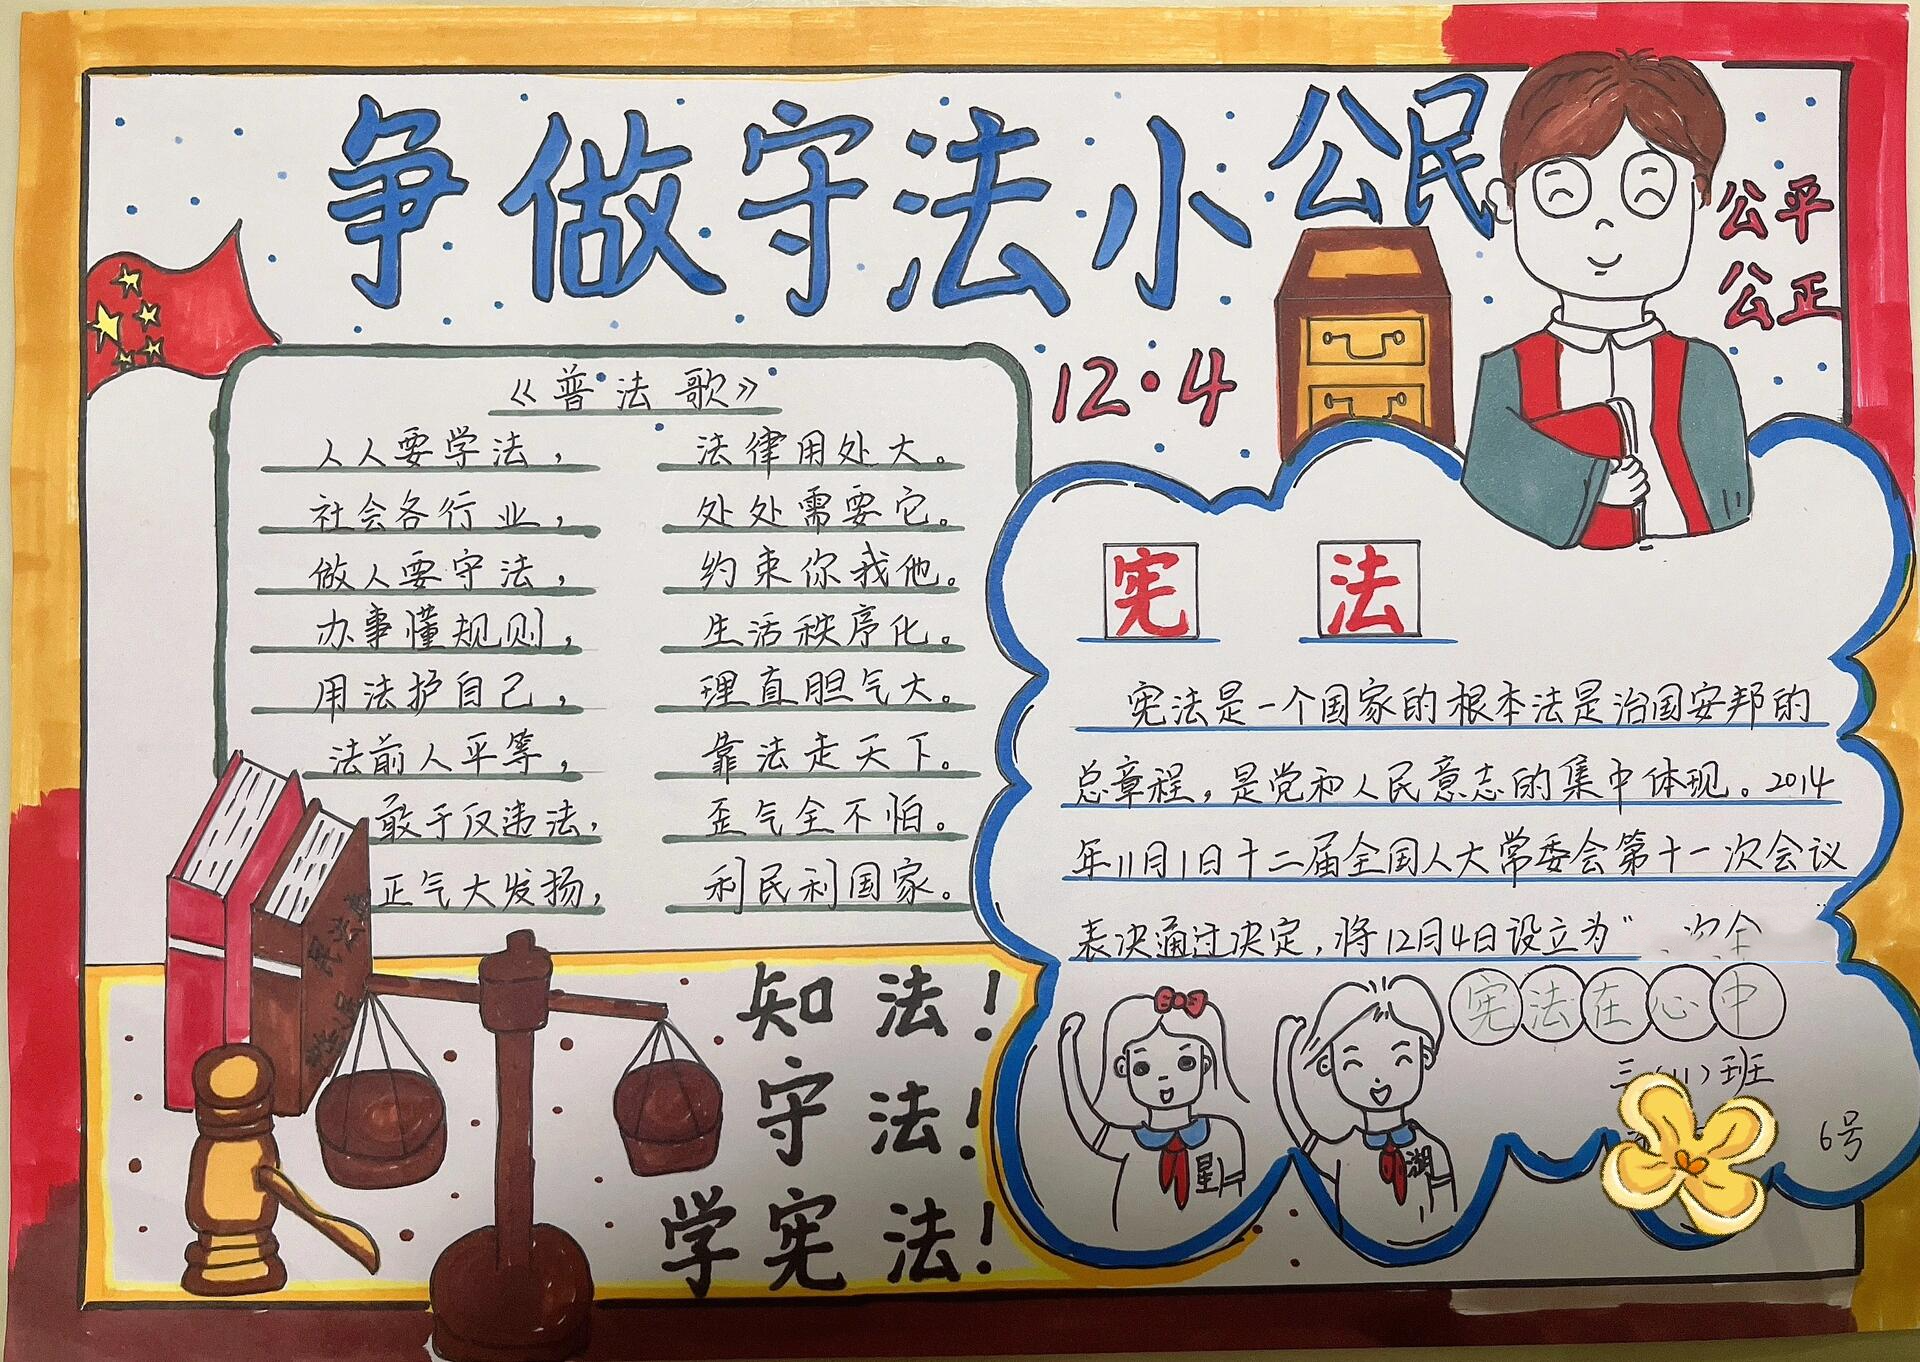 争做守法小公民
公平
公正
12·4
《普法歌》
人人要学法，法律用处大。
社会各行业，处处需要它。
做人要守法，约束你我他。
办事懂规则，生活秩序化。
用法护自己，理直胆气大。
法前人平等，靠法走天下。
敢于反违法，歪气全不怕。
正气大发扬，利民利国家。
宪法
宪法是一个国家的根本法是治国安邦的
总章程，是党和人民意志的集中体现。2014
年11月1日十二届全国人大常委会第十一次会议
表决通过决定，将12月4日设立为“
宪法在心中
三（11）班
6号
星
湖
民法典
知法！
守法！
学宪法！